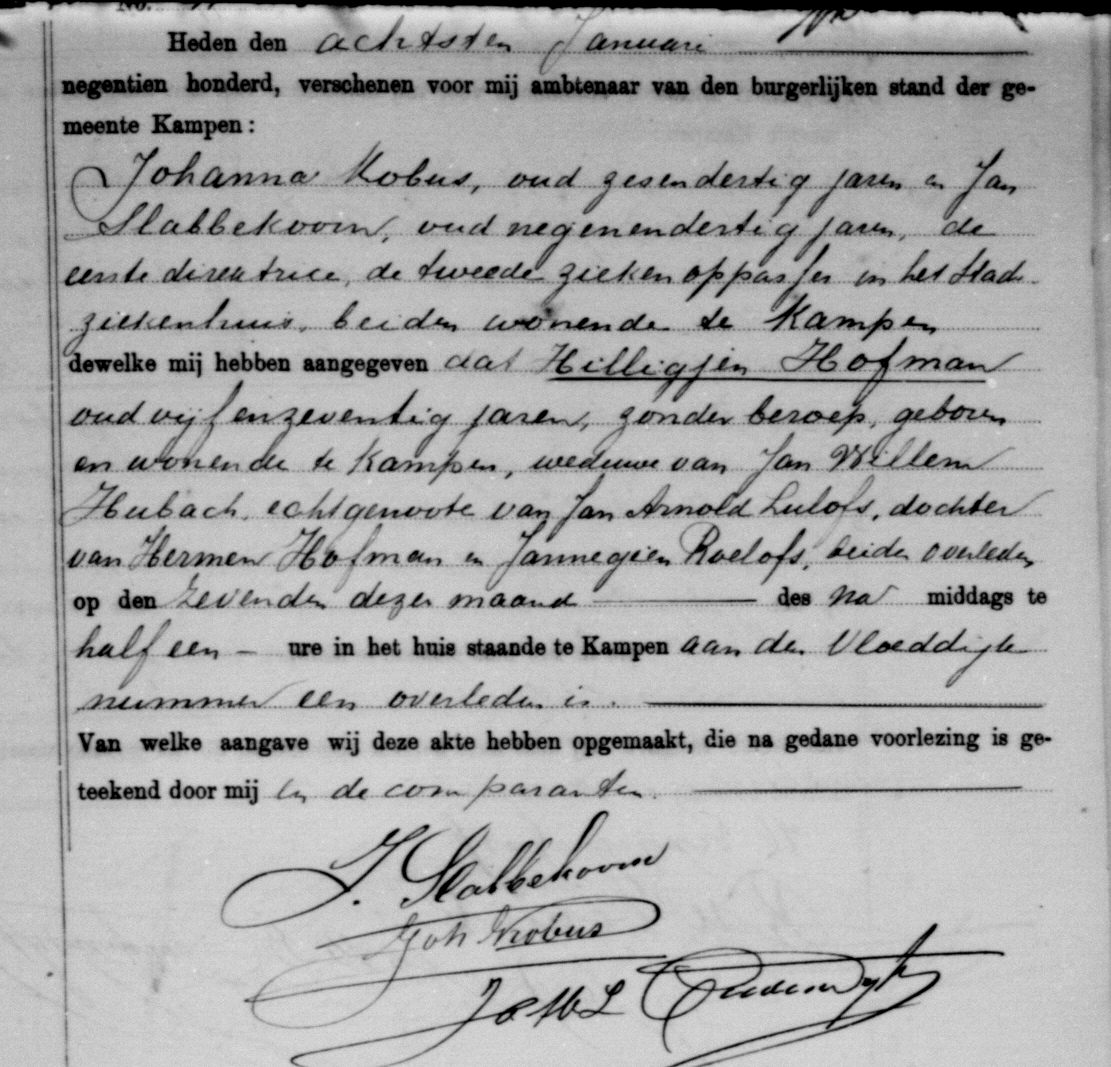 No.
Heden den achtsten Januari
negentien honderd, verschenen voor mij ambtenaar van den burgerlijken stand der ge-
meente Kampen:
Johanna Kobus, oud zesendertig jaren en Jan
Slabbekoorn, oud negenendertig jaren, de
eerste directrice, de tweede ziekenoppasser in het Stads
ziekenhuis, beiden wonende te Kampen
dewelke mij hebben aangegeven dat Hilligjen Hofman
oud vijfenzeventig jaren, zonder beroep, geboren
en wonende te Kampen, weduwe van Jan Willem
Hubach, echtgenoote van Jan Arnold Lulofs, dochter
van Hermen Hofman en Jannegien Roelofs, beiden overleden
op den zevenden dezer maand des na middags te
half een – ure in het huis staande te Kampen aan den Vloeddijk
nummer een overleden is.
Van welke aangave wij deze akte hebben opgemaakt, die na gedane voorlezing is ge-
teekend door mij en de comparanten.
J. Slabbekoorn
Joh Kobus